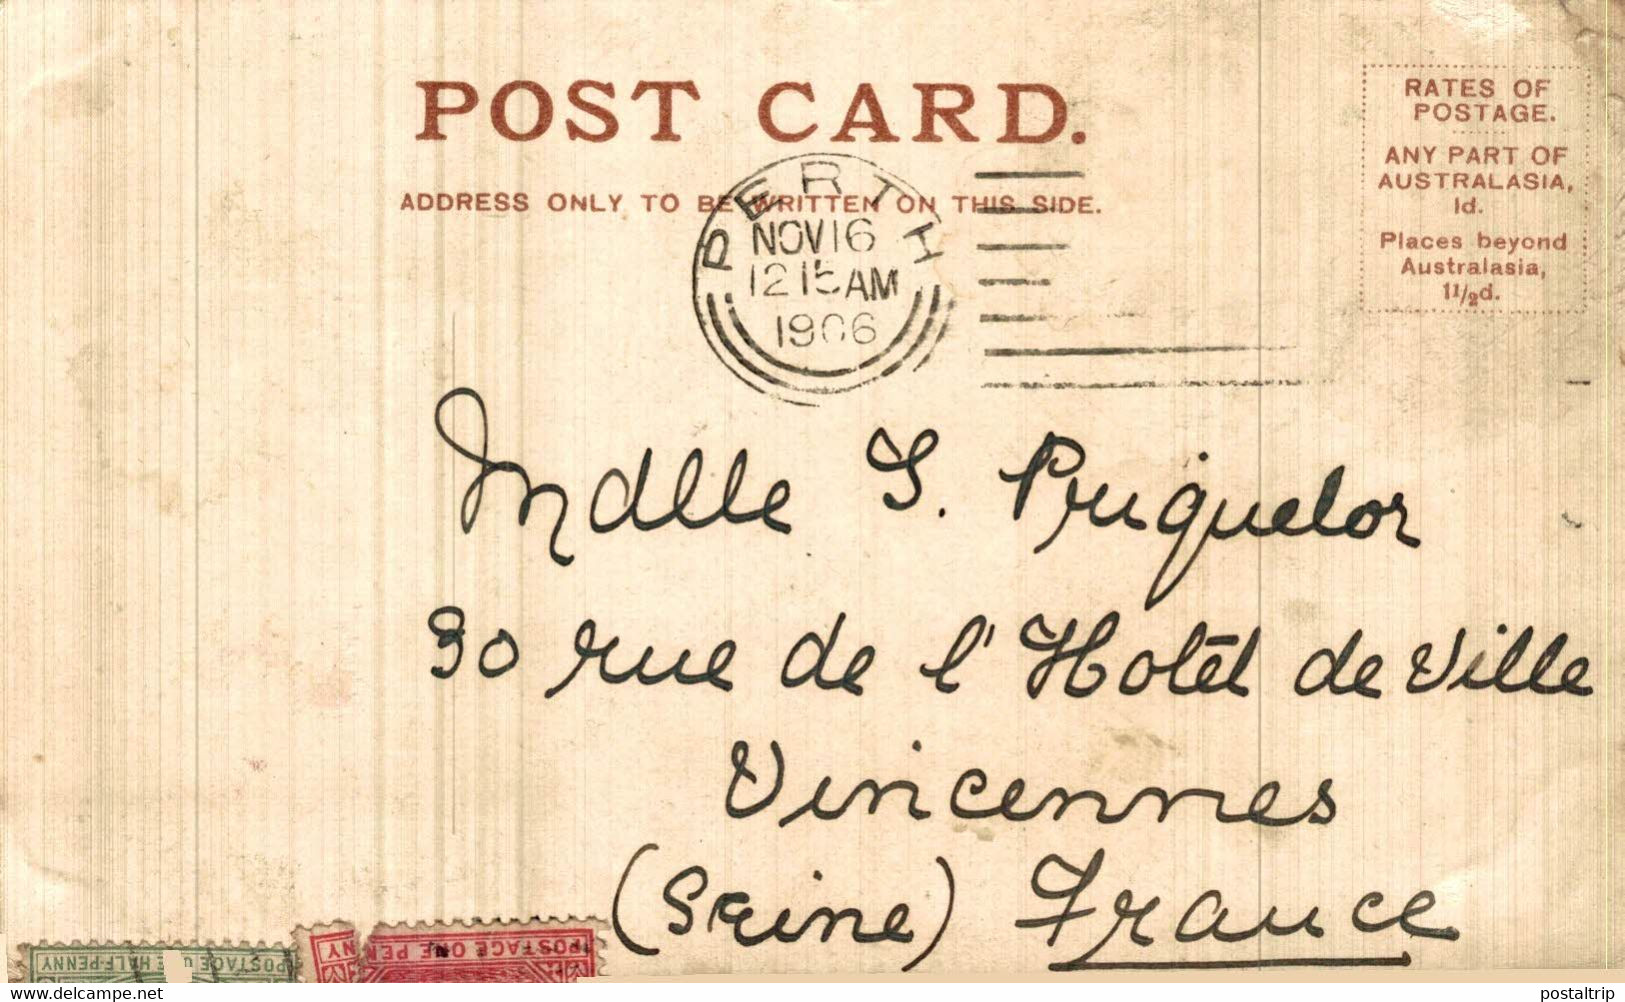 POST CARD.
ADDRESS ONLY TO BE WRITTEN ON THIS SIDE.
RATES OF
POSTAGE.
ANY PART OF
AUSTRALASIA,
1d.
Places beyond
Australasia,
1 1/2d.
PERTH
NOV 16
12 15 AM
1906
Mdlle S. Priquelor
30 rue de l'Hotêl de Ville
Vincennes
(Seine) France
POSTAGE ONE HALF-PENNY
POSTAGE ONE PENNY
www.delcampe.net
postaltrip